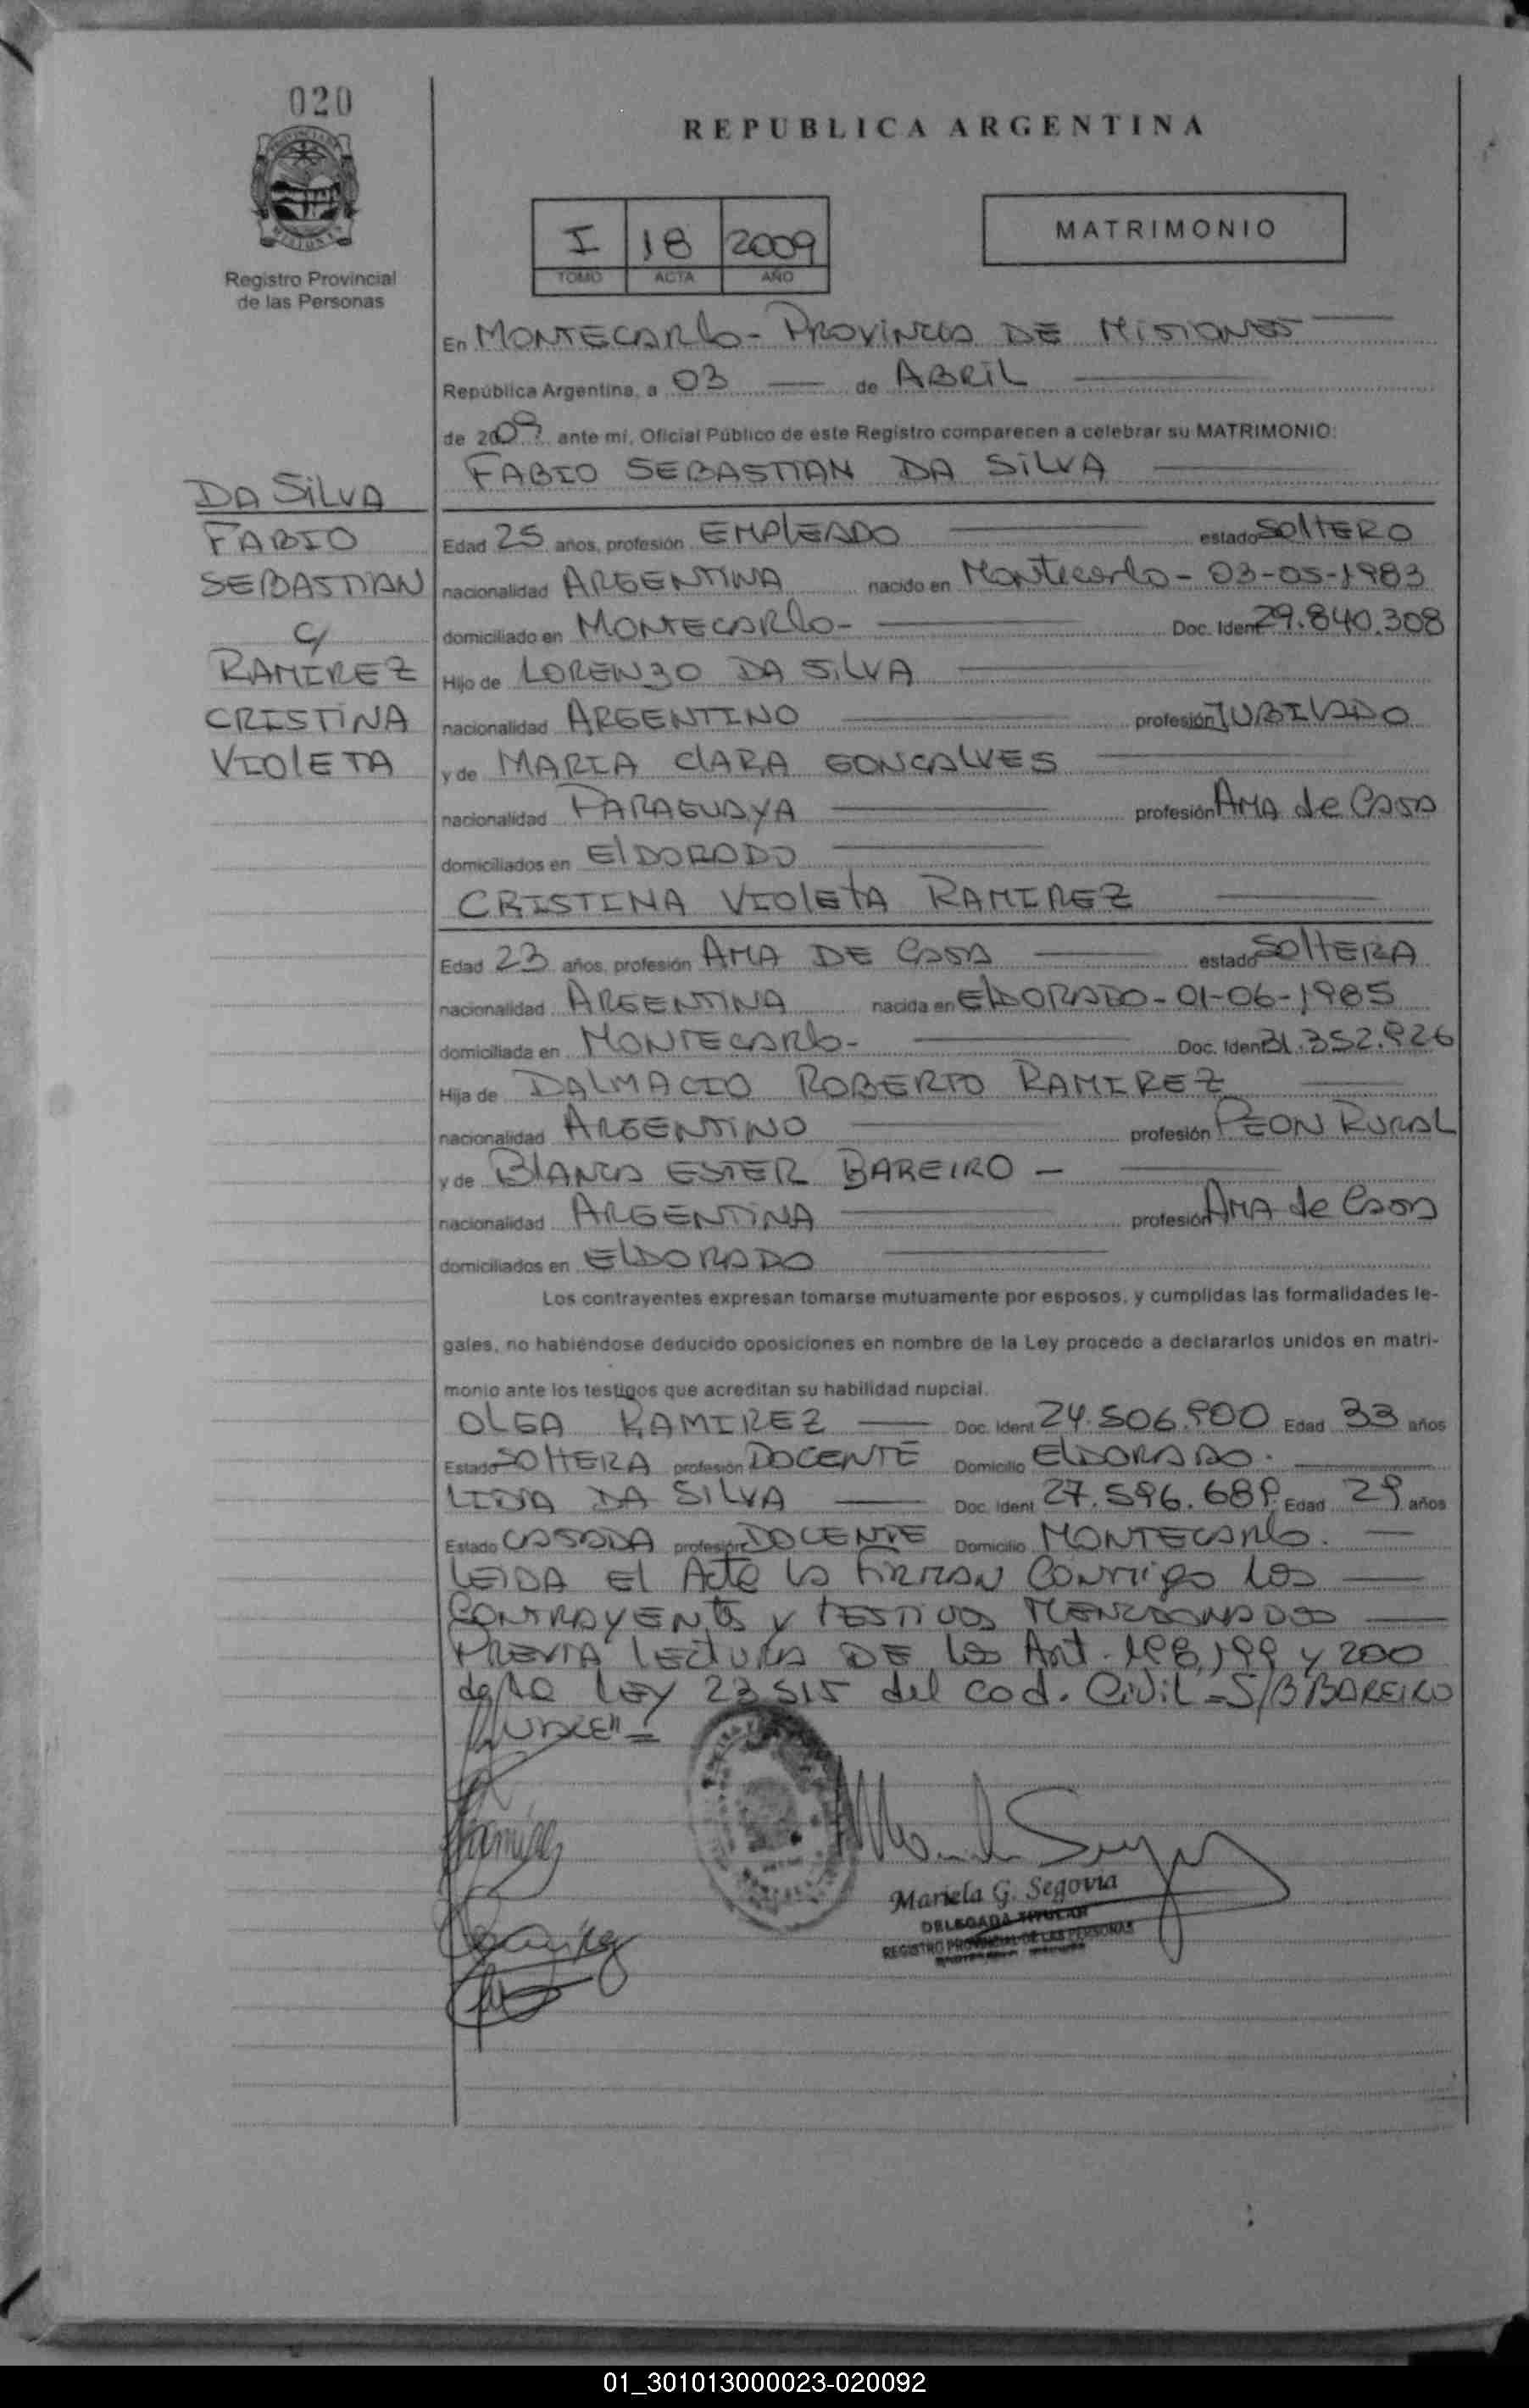 020
REPUBLICA ARGENTINA
I 18 2009
TOMO ACTA AÑO
MATRIMONIO
Registro Provincial
de las Personas
En MONTECARLO - PROVINCIA DE MISIONES
República Argentina, a 03 de ABRIL
de 2009 ante mí, Oficial Público de este Registro comparecen a celebrar su MATRIMONIO:
FABIO SEBASTIAN DA SILVA
DA SILVA
FABIO
SEBASTIAN
c/
RAMIREZ
CRISTINA
VIOLETA
Edad 25 años, profesión EMPLEADO estado SOLTERO
nacionalidad ARGENTINA nacido en Montecarlo - 03-05-1983
domiciliado en MONTECARLO - Doc. Ident 29.840.308
Hijo de LORENZO DA SILVA
nacionalidad ARGENTINO profesión JUBILADO
y de MARIA CLARA GONCALVES
nacionalidad PARAGUAYA profesión AMA de CASA
domiciliados en ELDORADO
CRISTINA VIOLETA RAMIREZ
Edad 23 años, profesión AMA DE CASA estado SOLTERA
nacionalidad ARGENTINA nacida en ELDORADO - 01-06-1985
domiciliada en MONTECARLO - Doc. Ident 31.352.926
Hija de DALMACIO ROBERTO RAMIREZ
nacionalidad ARGENTINO profesión PEON RURAL
y de BLANCA ESTER BAREIRO -
nacionalidad ARGENTINA profesión AMA de CASA
domiciliados en ELDORADO
Los contrayentes expresan tomarse mutuamente por esposos, y cumplidas las formalidades le-
gales, no habiéndose deducido oposiciones en nombre de la Ley procedo a declararlos unidos en matri-
monio ante los testigos que acreditan su habilidad nupcial.
OLGA RAMIREZ Doc. Ident 24.506.900 Edad 33 años
Estado SOLTERA profesión DOCENTE Domicilio ELDORADO.
LIDIA DA SILVA Doc. Ident 27.596.689 Edad 29 años
Estado CASADA profesión DOCENTE Domicilio MONTECARLO.
LEIDA El Acta la FIRMAN CONMIGO LOS
CONTRAYENTES y TESTIGOS MENCIONADOS
PREVIA LECTURA DE LOS Art. 198, 199 y 200
de la LEY 23.515 del cod. CIVIL = S/B BAREIRO
Ramirez
Mariela G. Segovia
DELEGADA TITULAR
REGISTRO PROVINCIAL DE LAS PERSONAS
01_301013000023-020092